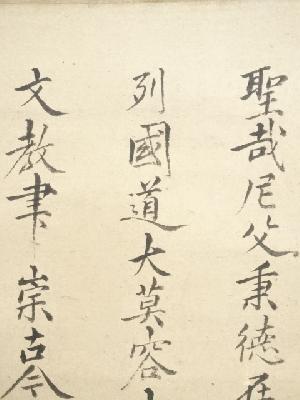 聖哉尼父秉德
列國道大莫容
文教聿崇古今